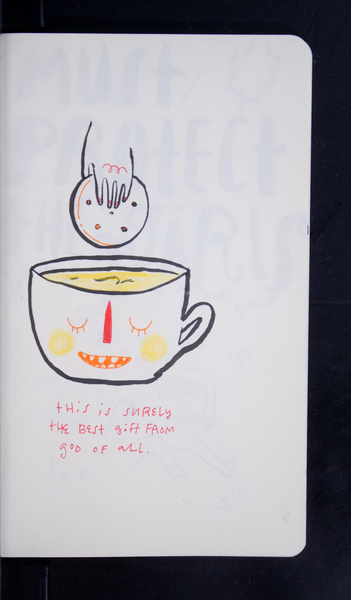 this is surely
the best gift from
god of all.